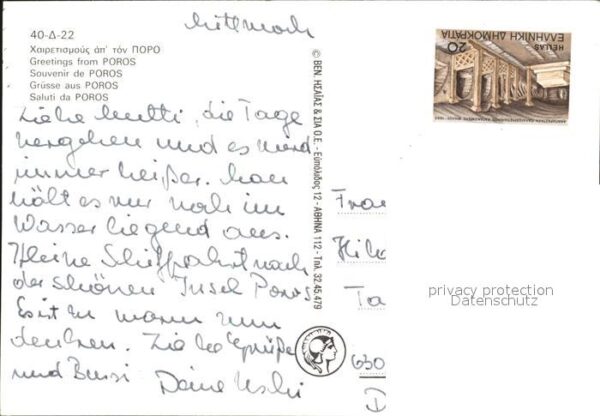 Mittwoch
40-Δ-22
Χαιρετισμούς ἀπ' τόν ΠΟΡΟ
Greetings from POROS
Souvenir de POROS
Grüsse aus POROS
Saluti da POROS
Liebe Mutti, die Tage
vergehen und es wird
immer heißer. Man
hält es nur noch im
Wasser liegend aus.
Kleine Schiffahrt nach
der schönen Insel Poros
Es ist zu warm zum
denken. Liebe Grüße
und Bussi Deine Uschi
© ΒΕΝ. ΗΣΑΪΑΣ & ΣΙΑ Ο.Ε. - Εὐπόλιδος 12 - ΑΘΗΝΑ 112 - Τηλ. 32.45.479
20
ΕΛΛΗΝΙΚΗ ΔΗΜΟΚΡΑΤΙΑ
HELLAS
Frau
Ta
630
D
privacy protection
Datenschutz